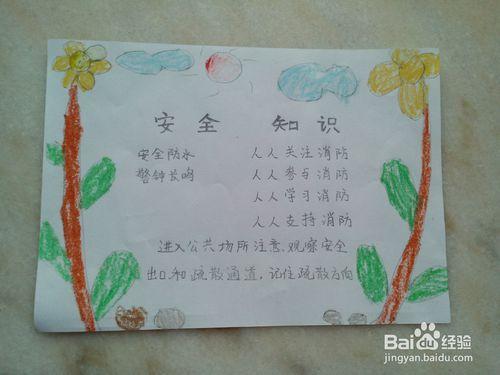 安全 知识
安全防水
警钟长鸣
人人关注消防
人人参与消防
人人学习消防
人人支持消防
进入公共场所注意、观察安全
出口和疏散通道，记住疏散方向
Baidu经验
jingyan.baidu.com